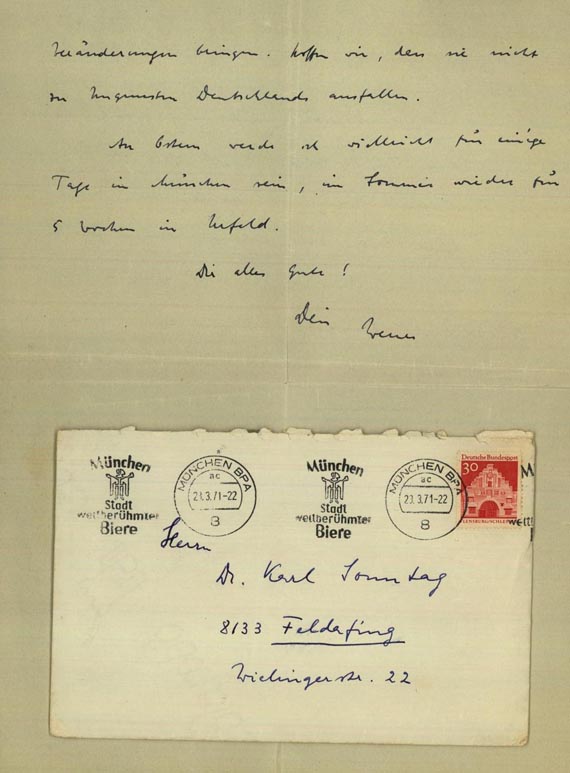 Veränderungen bringen. Hoffen wir, dass sie nicht
zu Ungunsten Deutschlands ausfallen.
An Ostern werde ich vielleicht für einige
Tage in München sein, im Sommer wieder für
5 Wochen in Urfeld.
Dir alles Gute!
Dein Werner
München
Stadt
weltberühmter
Biere
MÜNCHEN BPA
ac
23.3.71-22
8
München
Stadt
weltberühmter
Biere
MÜNCHEN BPA
ac
23.3.71-22
8
Deutsche Bundespost
30
FLENSBURG/SCHLESWIG
Herrn
Dr. Karl Sonntag
8133 Feldafing
Wielingerstr. 22